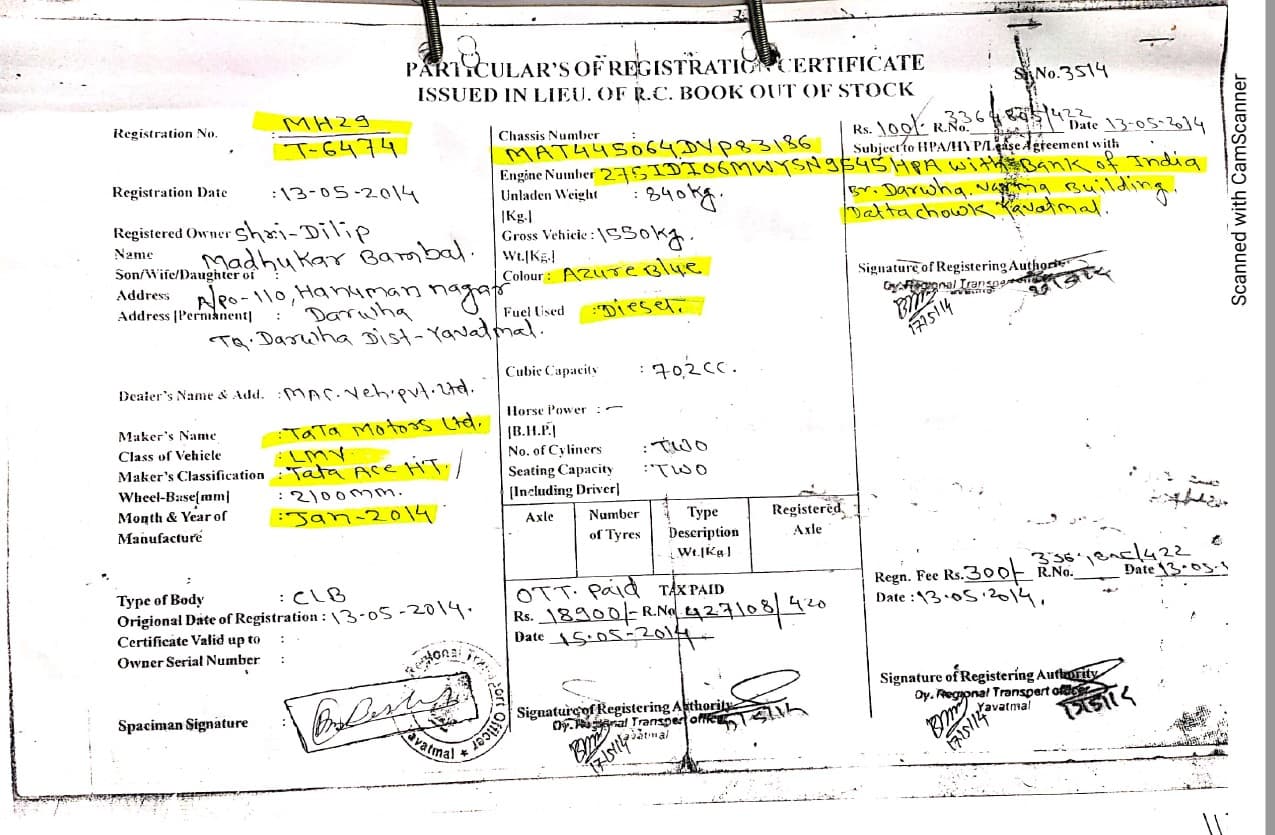 PARTICULAR'S OF REGISTRATION CERTIFICATE
ISSUED IN LIEU. OF R.C. BOOK OUT OF STOCK
Sr. No. 3514
Registration No. : MH29
T-6474
Registration Date : 13-05-2014
Registered Owner Shri-Dilip
Name Madhukar Bambal.
Son/Wife/Daughter of :
Address A/po-110, Hanuman nagar
Address [Permanent] : Darwha
Tq. Darwha Dist-Yavatmal.
Dealer's Name & Add. : MAC. Veh. pvt. Ltd.
Maker's Name : TATA Motors Ltd.
Class of Vehicle : LMV
Maker's Classification : Tata Ace HT.
Wheel-Base[mm] : 2100mm.
Month & Year of : Jan-2014
Manufacture
Type of Body : CLB
Origional Date of Registration : 13-05-2014.
Certificate Valid up to :
Owner Serial Number :
Spaciman Signature :
Chassis Number :
MAT445064DVP83186
Engine Number 275IDI06MWYSN9545
Unladen Weight : 840kg.
[Kg.]
Gross Vehicle : 1550kg.
Wt.[Kg.]
Colour : Azure Blue
Fuel Used : Diesel.
Cubic Capacity : 702CC.
Horse Power : —
[B.H.P.]
No. of Cyliners : TWO
Seating Capacity : TWO
[Including Driver]
Axle Number of Tyres Type Description Wt.[Kg.] Registered Axle
OTT. Paid TAX PAID
Rs. 18900/- R.No. 427108/420
Date 15-05-2014
Signature of Registering Authority
Dy. Regional Transport officer
Yavatmal
17/5/14
Rs. 100/- R.No. /422 Date 13-05-2014
Subject to HPA/HYP/Lease Agreement with
HPA with Bank of India
Br. Darwha. Building.
Datta chowk Yavatmal.
Signature of Registering Authority
Dy. Regional Transport
17/5/14
Regn. Fee Rs. 300/- R.No. /422 Date 13-05-
Date : 13.05.2014.
Signature of Registering Authority
Dy. Regional Transpert officer
Yavatmal
17/5/14
Regional Transport Officer
Yavatmal
Scanned with CamScanner